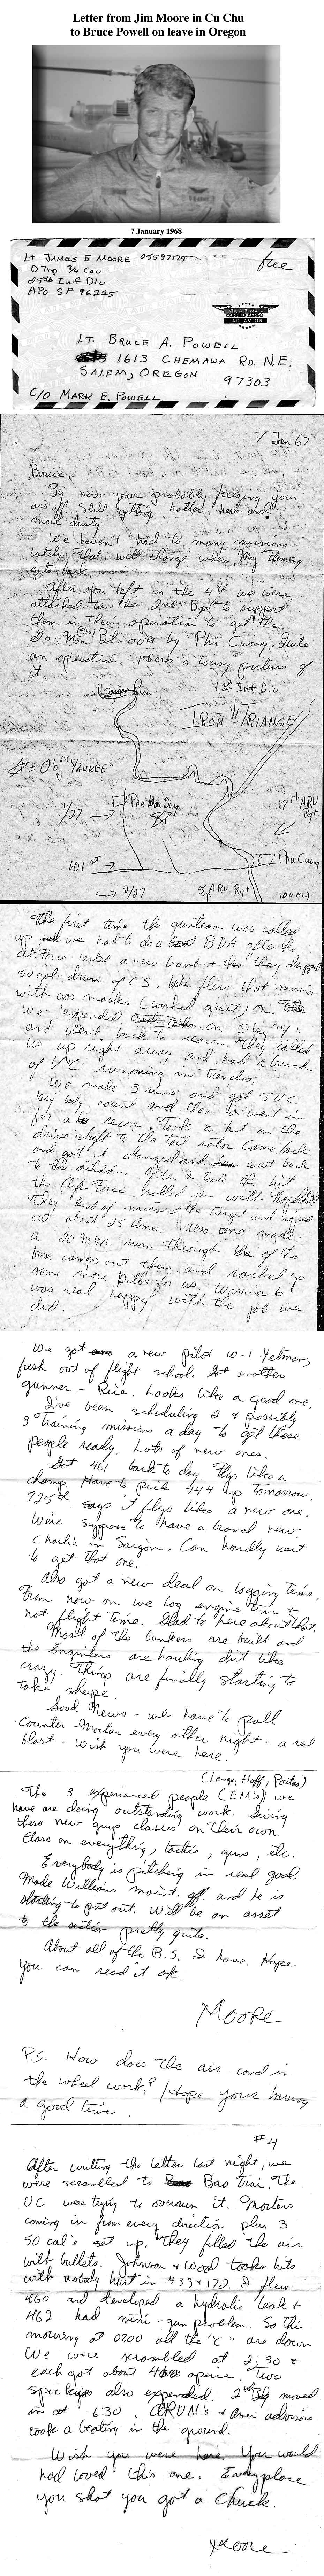 Letter from Jim Moore in Cu Chu
to Bruce Powell on leave in Oregon
7 January 1968
LT JAMES E MOORE 05537179
D Trp 3/4 Cav
25th Inf Div
APO SF 96225
free
VIA AIR MAIL
CORREO AEREO
PAR AVION
LT. BRUCE A. POWELL
1613 CHEMAWA RD. N.E.
SALEM, OREGON
97303
C/O MARK E. POWELL
7 Jan 67
Bruce,
By now your probably freezing your
ass off. Still getting hotter here and
more dusty.
We haven't had to many missions
lately. That will change when Maj Fleming
gets back.
After you left on the 4th we were
attached to the 2nd Bgt to support
them in their operation to get the
20-Mon Bn. over by Phu Cuong. Quite
an operation. Here's a lousy picture of
it.
Saigon River
1st Inf Div
IRON TRIANGE
= Obj "YANKEE"
1/27
Phu Hoa Dong
7th ARV
Rgt
Phu Cuong
101st
2/27
5 ARV Rgt
The first time the gunteam was called
up we had to do a BDA after the
airforce tested a new bomb + they dropped
50 gal drums of CS. We flew that mission
with gas masks (worked great) on.
We expended on Obj "Y"
and went back to rearm. They called
us up right away and had a bunch
of VC running in trenches.
We made 3 runs and got 5 VC
big body count and then I went in
for a recon. Took a hit on the
drive shaft to the tail rotor. Came back
and got it changed and went back
to the action. After I took the hit
the Air Force rolled in with Napalm.
They kind of missed the target and wiped
out about 25 Amer. Also one made
a 20 MM run through one of the
base camps out there and racked up
some more kills for us. Warrior 6
was real happy with the job we
did.
We got a new pilot W-1 Yetman,
fresh out of flight school. Got another
gunner - Rice. Looks like a good one.
I've been scheduling 2 + possibly
3 training missions a day to get these
people ready. Lots of new ones.
Got 461 back to day. Flys like a
champ. Have to pick 444 up tomorrow.
725th says it flys like a new one.
We're suppose to have a brand new
Charlie in Saigon. Can hardly wait
to get that one!
Also got a new deal on logging time.
From now on we log engine time +
not flight time. Glad to here about that.
Most of the bunkers are built and
the Engineers are hauling dirt like
crazy. Things are finally starting to
take shape.
Good News - we have to pull
Counter-Mortar every other night - a real
blast - Wish you were here.
(Lange, Hoff, Porter)
The 3 experienced people (EM's) we
have are doing outstanding work. Giving
these new guys classes on their own.
Class on everything, tactics, guns, etc.
Everybody is pitching in real good.
Made Williams maint. off. and he is
starting to put out. Will be an asset
to the section pretty quite.
About all of the B.S. I have. Hope
you can read it ok.
Moore
P.S. How does the air cond in
the wheel work? / Hope your having
a good time.
#4
After writting the letter last night, we
were scrambled to Bao Trai. The
VC were trying to overrun it. Mortars
coming in from every direction plus 3
50 cal's set up. They filled the air
with bullets. Johnson + Wood tooken hits
with nobody hurt in 433 + 172. I flew
460 and developed a hydrolic leak +
462 had mini-gun problem. So this
morning at 0700 all the "C" are down
We were scrambled at 2:30 +
each got about 4 apeice. Two
Spookys also expended. 2nd Bg moved
in at 6:30. ARVN's + Amer advisors
took a beating in the ground.
Wish you were here. You would
had loved this one. Everyplace
you shot you got a Chuck.
Moore